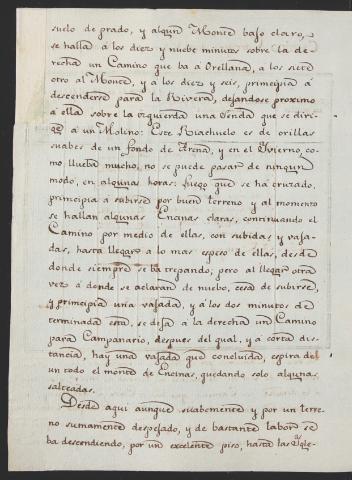 suelo de prado, y algun Monte bajo claro,
se halla á los diez y nuebe minutos sobre la de-
recha un Camino que ba á Orellana, á los siete
otro al Monte, y á los diez y seis, principia á
descenderse para la Rivera, dejandose proximo
á ella sobre la izquierda una Senda que se diri-
ge á un Molino: Este Riachuelo es de orillas
suabes de un fondo de Arena, y en el Ivierno, co-
mo, llueba mucho, no se puede pasar de ningun
modo, en algunas horas: Luego que se há cruzado,
principia á subirse por buen terreno y al momento
se hallan algunas Encinas claras, continuando el
Camino por medio de ellas, con subidas y vaja-
das, hasta llegar á lo mas espeso de ellas, desde
donde siempre se ba trepando, pero al llegar otra
vez á donde se aclaran de nuebo, cesa de subirse,
y principia una vajada, y á los dos minutos de
terminada esta, se deja á la derecha un Camino
para Campanario, despues del qual, y á corta dis-
tancia, hay una vajada que concluida, espira del
un todo el monte de Encinas, quedando solo algunas
salteadas.
Desde aqui aunque suabemente y por un terre-
no sumamente despejado, y de bastante labor se
ba descendiendo, por un excelente piso, hasta las Ygle-